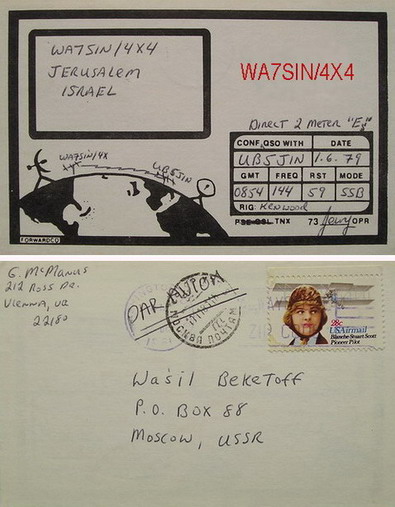 WA7SIN/4X4
JERUSALEM
ISRAEL
WA7SIN/4X4
DIRECT 2 METER "Es"
WA7SIN/4X
UB5JIN
CONF. QSO WITH DATE
UB5JIN 1.6.79
GMT FREQ RST MODE
0854 144 59 SSB
RIG: KENWOOD
PSE QSL TNX 73 Jerry OPR
FORWARDED
G. McManus
212 Ross Dr.
Vienna, VA
22180
PAR AVION
МОСКВА ПОЧТАМТ
28c
USAirmail
Blanche Stuart Scott
Pioneer Pilot
Wasil Beketoff
P.O. Box 88
Moscow, USSR